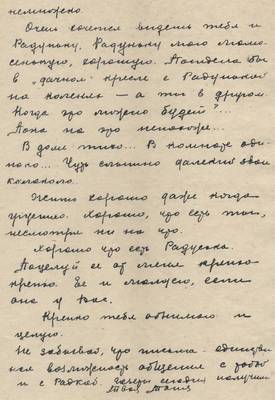 немножко.
Очень хочется видеть тебя и
Радуньку, Радуньку мою
сенькую, хорошую. Посидела бы
в "дачном" кресле с Радунькой
на коленях — а ты в другом.
Когда это можно будет?...
Пока на это непохоже...
В доме тихо... В комнате оди-
ноко... Чуть слышно далекий звон
колокола.
Жить хорошо даже когда
грустно. Хорошо, что есть ты,
несмотря ни на что.
Хорошо что есть Радуська.
Поцелуй ее от меня крепко
крепко. Ее и если
она у Вас.
Крепко тебя обнимаю и
целую.
Не забывай, что письма - единствен
ная возможность общения с тобой
и с Радкой. сегодня получили
Твоя